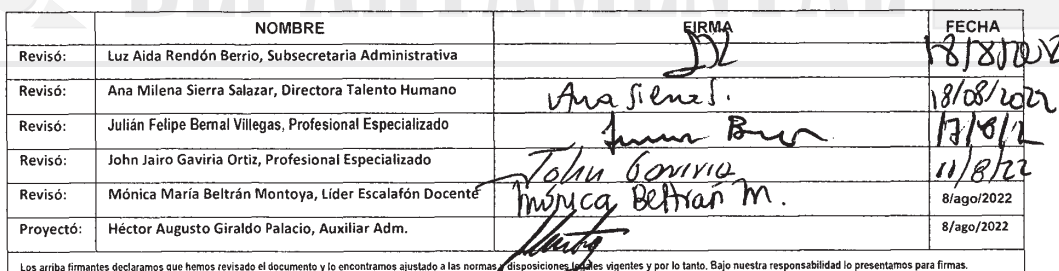 NOMBRE FIRMA FECHA
Revisó: Luz Aida Rendón Berrio, Subsecretaria Administrativa 18/8/2022
Revisó: Ana Milena Sierra Salazar, Directora Talento Humano Ana Sierra S. 18/08/2022
Revisó: Julián Felipe Bernal Villegas, Profesional Especializado
Revisó: John Jairo Gaviria Ortiz, Profesional Especializado John Gaviria 11/8/22
Revisó: Mónica María Beltrán Montoya, Líder Escalafón Docente Mónica Beltrán M. 8/ago/2022
Proyectó: Héctor Augusto Giraldo Palacio, Auxiliar Adm. 8/ago/2022
Los arriba firmantes declaramos que hemos revisado el documento y lo encontramos ajustado a las normas y disposiciones legales vigentes y por lo tanto. Bajo nuestra responsabilidad lo presentamos para firmas.